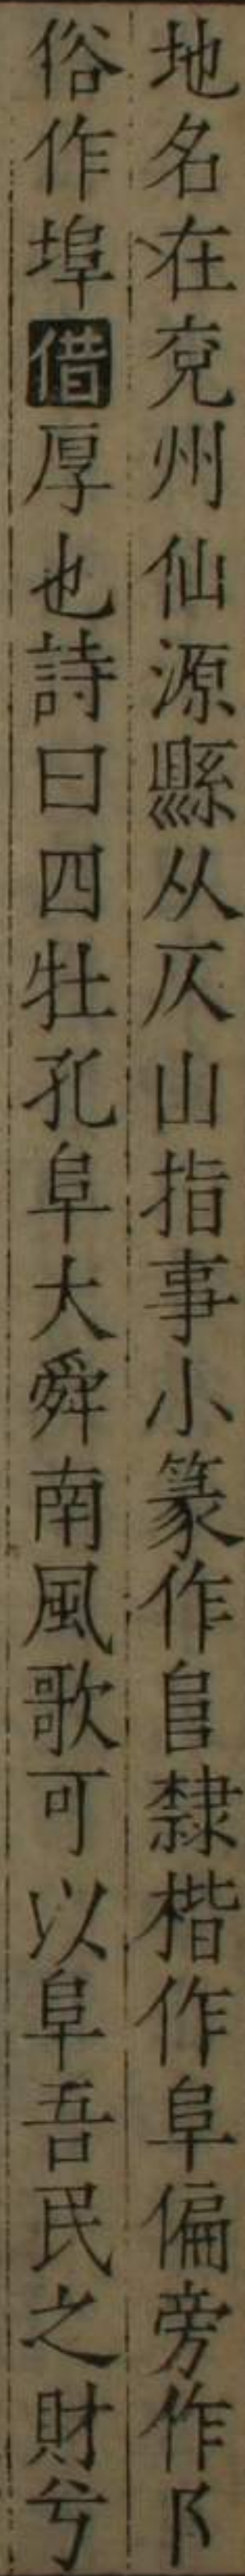 地名在兗州仙源縣从仄山指事小篆作𨸏隸楷作阜偏旁作阝
俗作埠借厚也詩曰四牡孔阜大舜南風歌可以阜吾民之財兮